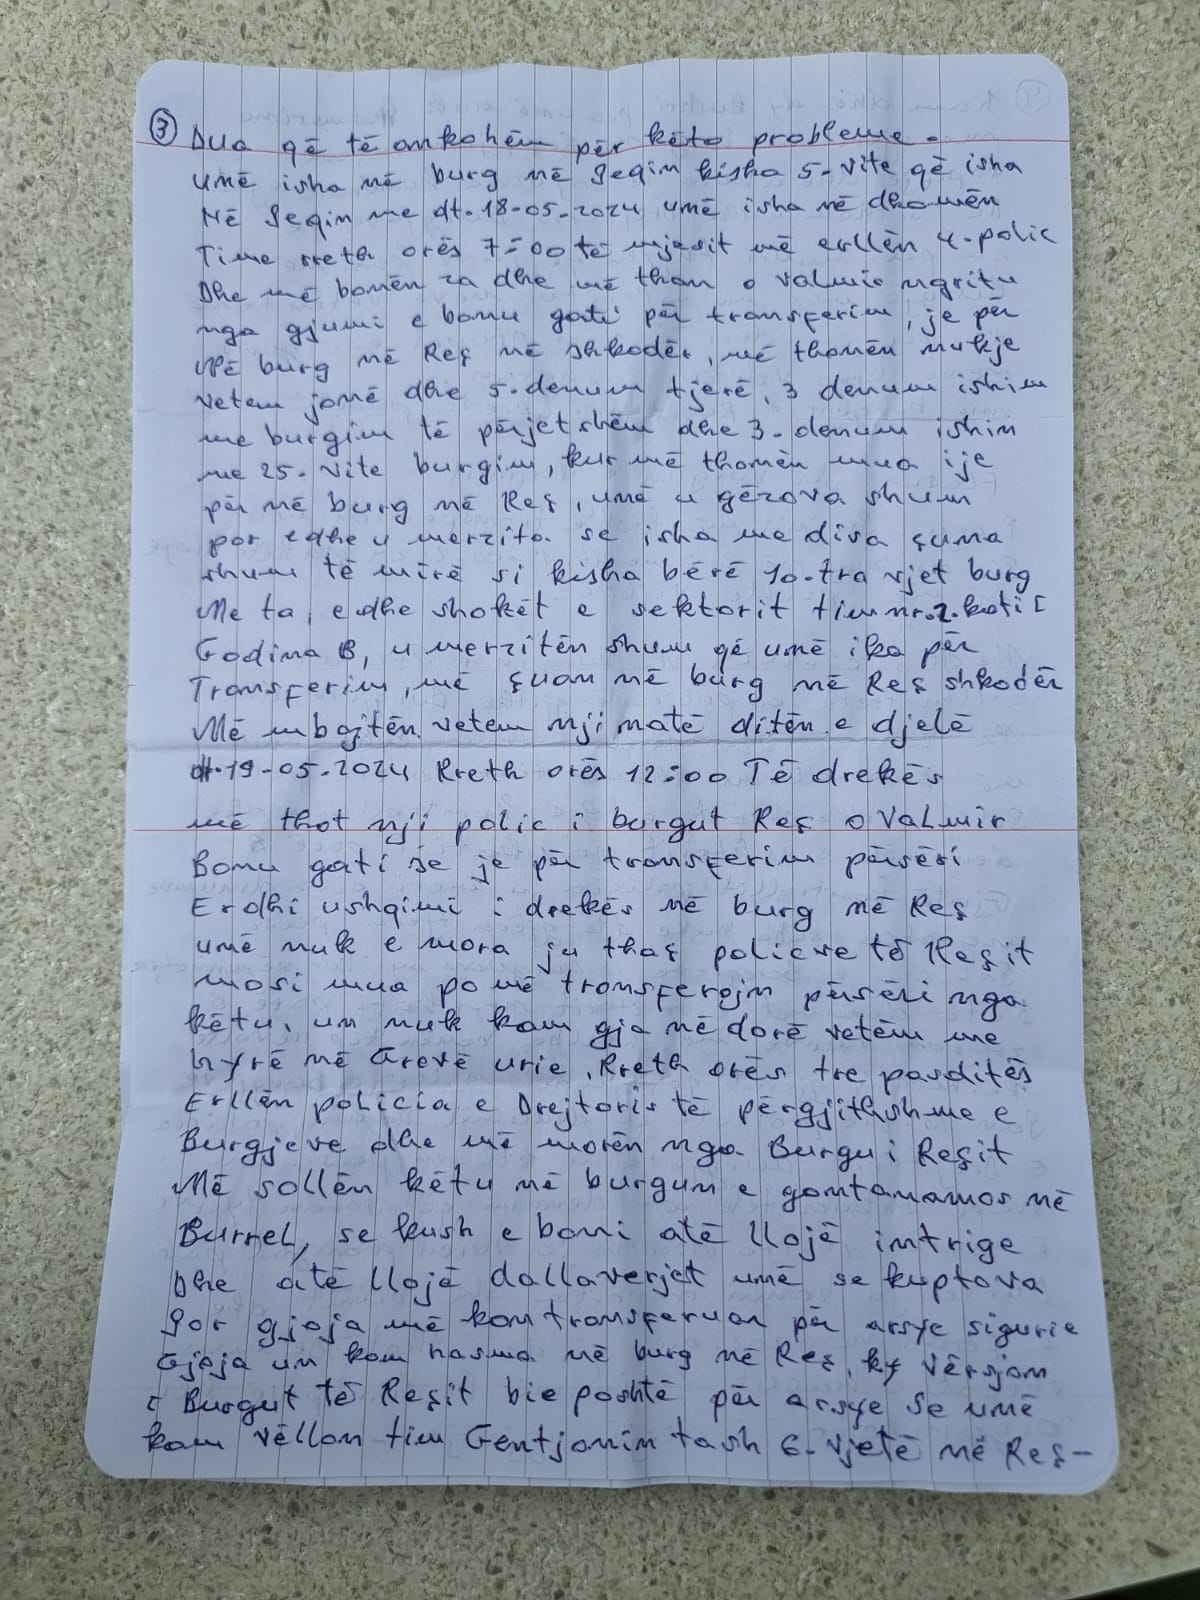 ③ Dua që të ankohëm për këto probleme.
Umë isha në burg në Peqin kisha 5-vite që isha
Në Peqin me dt.18-05-2024 umë isha në dhomën
Time rreth orës 7:00 të mjesit më erllën 4-polic
Dhe më bonën za dhe më than o Valmir ngritu
nga gjumi e bonu gati për transferim, je për
Në burg në Reç në Shkodër, më thomën nukje
vetem jomë dhe 5-denum tjerë, 3 denum ishim
me burgim të përjetshëm dhe 3-denum ishin
me 25-vite burgim, kur më thomën mua ije
për në burg në Reç, umë u gëzova shum
por edhe u merzita se isha me disa çuna
shum të mirë si kisha bërë 10-tra vjet burg
Me ta, edhe shokët e sektorit tim nr.2.kati I
Godina B, u merzitën shum që umë ika për
Transferim, më çuan në burg në Reç shkodër
Më mbajtën vetem nji natë ditën e djelë
dt.19-05-2024 Rreth orës 12:00 Të drekës
më thot nji polic i burgut Reç o Valmir
Bonu gati se je për transferim përsëri
Erdhi ushqimi i drekës në burg në Reç
umë nuk e mora ju thaç policve të Reçit
mosi mua po më transferojn përsëri nga
këtu, un nuk kam gja në dorë vetëm me
hyrë në Grevë urie, Rreth orës tre pasditës
Erllën policia e Drejtoris të përgjithshme e
Burgjeve dhe më morën nga Burgu i Reçit
Më sollën këtu në burgun e gontanamos në
Burrel, se kush e boni atë llojë intrige
Dhe atë llojë dallaverjet umë se kuptova
Por gjoja më kon transferuar për arsye sigurie
Gjoja un kam hasma në burg në Reç, ky vërsjon
i Burgut të Reçit bie poshtë për arsye se umë
kam vëllon tim Gentjonin tash 6-vjetë në Reç-